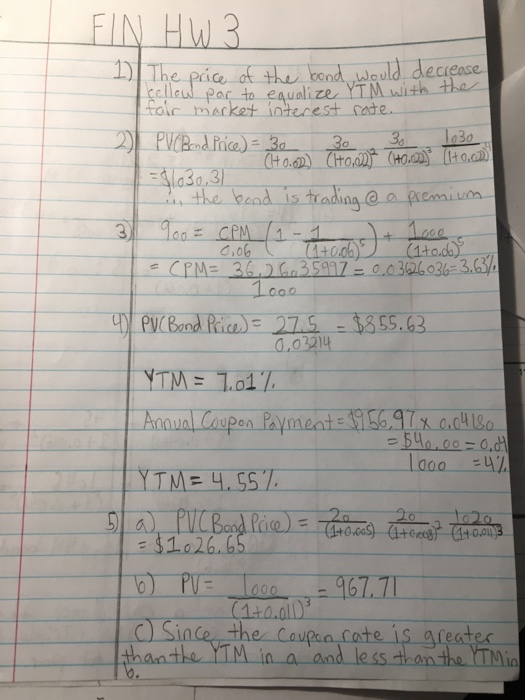 FIN HW 3
1) The price of the bond would decrease
bellow par to equalize YTM with the
fair market interest rate.
2) PV(Bond Price) = 30/(1+0.02) 30/(1+0.02)² 30/(1+0.02)³ 1030/(1+0.02)⁴
= $1030.31
∴ the bond is trading @ a premium
3) 900 = CPM/0.06 (1 - 1/(1+0.06)⁵) + 1000/(1+0.06)⁵
= CPM = 36.26035997/1000 = 0.03626036 = 3.63%
4) PV(Bond Price) = 27.5/0.03214 = $855.63
YTM = 7.01%
Annual Coupon Payment = $956.97 x 0.04180
= $40.00/1000 = 0.04
= 4%
YTM = 4.55%
5) a) PV(Bond Price) = 20/(1+0.005) 20/(1+0.008)² 1020/(1+0.011)³
= $1026.65
b) PV = 1000/(1+0.011)³ = 967.71
c) Since the coupon rate is greater
than the YTM in a and less than the YTM in
b.